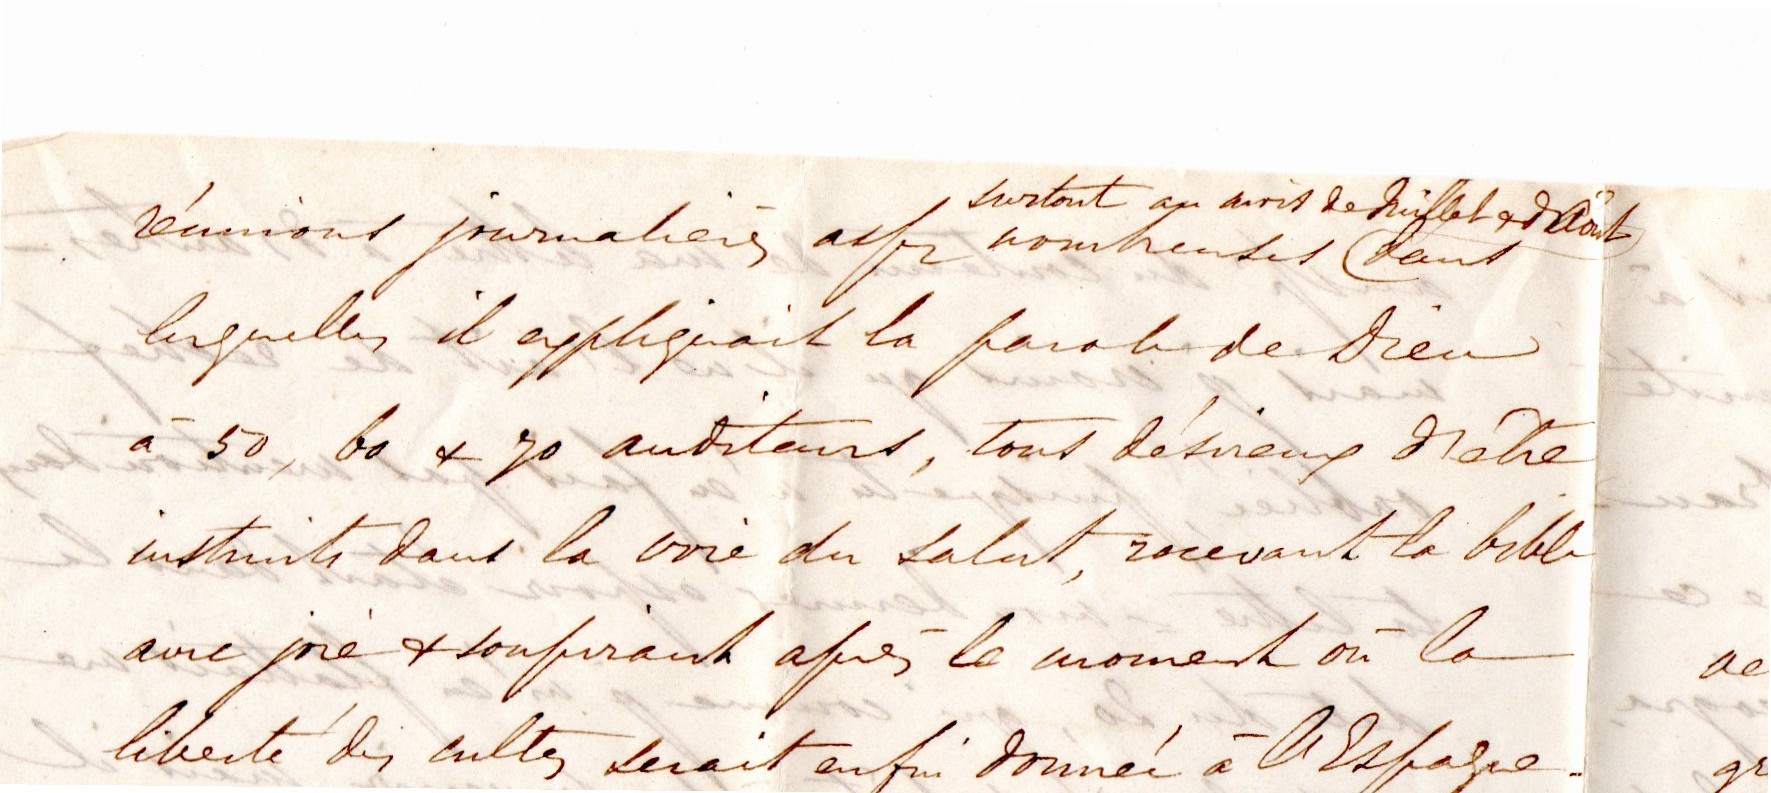 surtout au mois de Juillet & d'Août
réunions journalières assez nombreuses dans
lesquelles il expliquait la parole de Dieu
à 50, 60 & 70 auditeurs, tous désireux d'être
instruits dans la voie du salut, recevant la bible
avec joie & soupirant après le moment où la
liberté des cultes serait enfin donnée à l'Espagne.